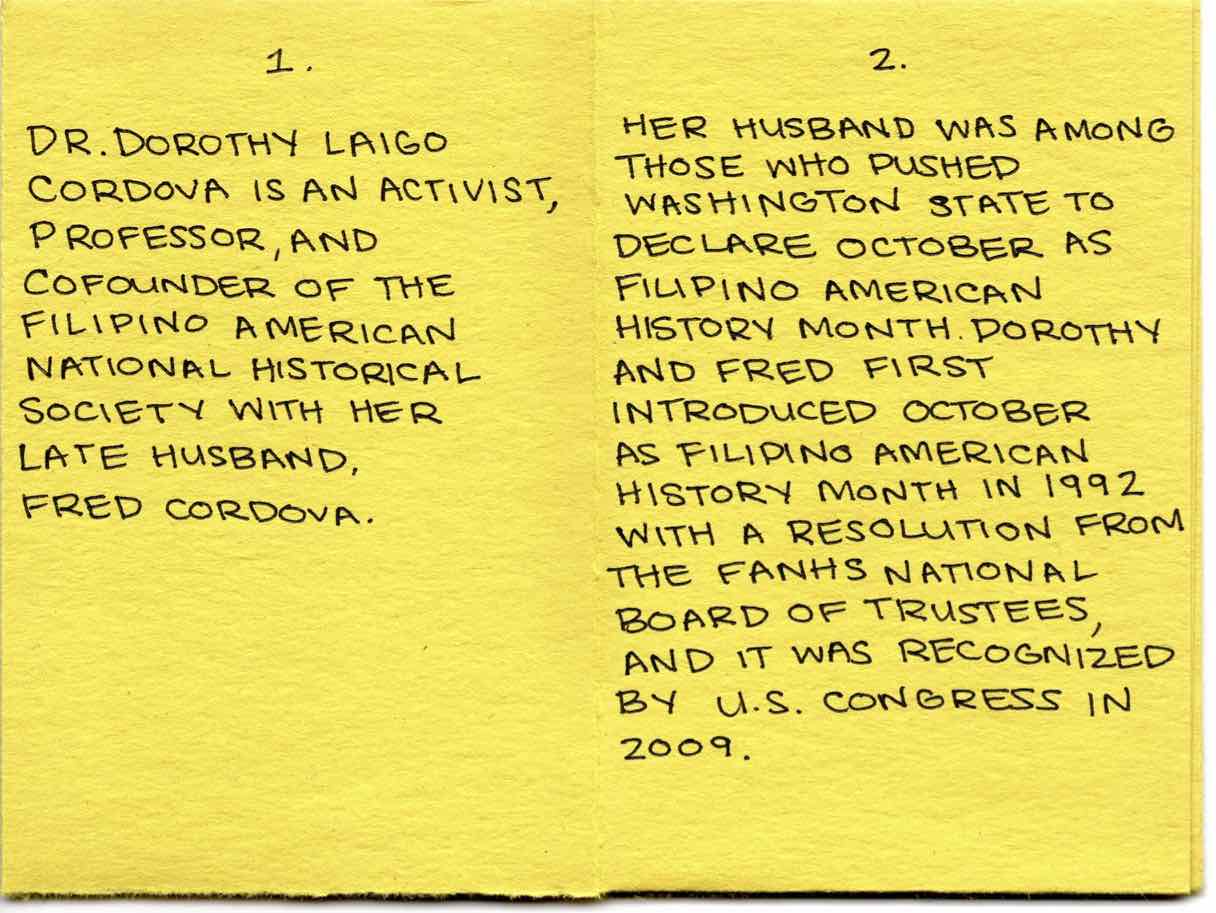 1.
DR. DOROTHY LAIGO
CORDOVA IS AN ACTIVIST,
PROFESSOR, AND
COFOUNDER OF THE
FILIPINO AMERICAN
NATIONAL HISTORICAL
SOCIETY WITH HER
LATE HUSBAND,
FRED CORDOVA.
2.
HER HUSBAND WAS AMONG
THOSE WHO PUSHED
WASHINGTON STATE TO
DECLARE OCTOBER AS
FILIPINO AMERICAN
HISTORY MONTH. DOROTHY
AND FRED FIRST
INTRODUCED OCTOBER
AS FILIPINO AMERICAN
HISTORY MONTH IN 1992
WITH A RESOLUTION FROM
THE FANHS NATIONAL
BOARD OF TRUSTEES,
AND IT WAS RECOGNIZED
BY U.S. CONGRESS IN
2009.